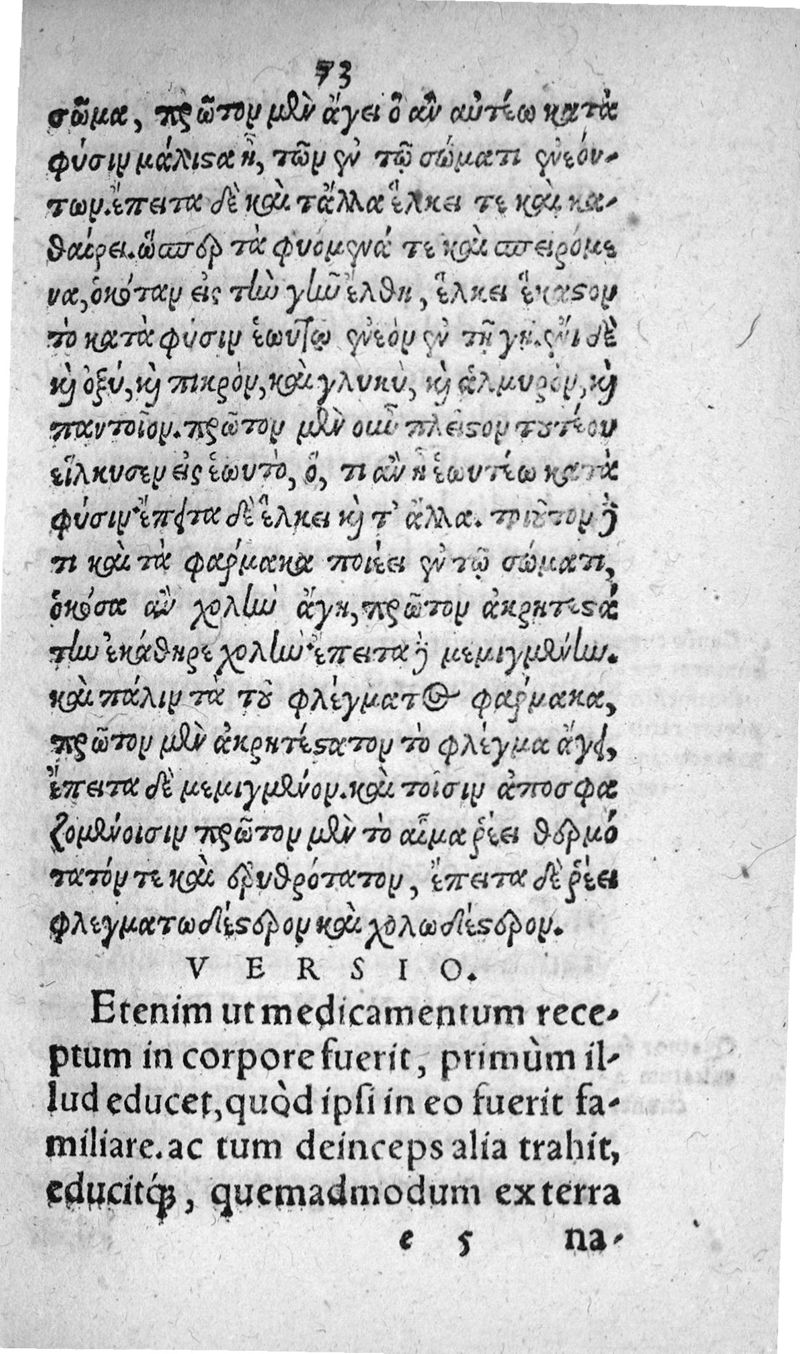 73
σῶμα, πρῶτον μὲν ἄγει ὃ ἂν αὐτέω κατὰ
φύσιν μάλιστα ᾖ, τῶν ἐν τῷ σώματι ἐνεόν-
των. ἔπειτα δὲ καὶ τἄλλα ἕλκει τε καὶ κα-
θαίρει. ὥσπερ τὰ φυόμενά τε καὶ σπειρόμε
να, ὁκόταν εἰς τὴν γῆν ἔλθῃ, ἕλκει ἕκαστον
τὸ κατὰ φύσιν ἑωυτῷ ἐνεὸν ἐν τῇ γῇ. ἔνι δὲ
καὶ ὀξύ, καὶ πικρὸν, καὶ γλυκὺ, καὶ ἁλμυρὸν, καὶ
παντοῖον. πρῶτον μὲν οὖν πλεῖστον τουτέου
εἵλκυσεν εἰς ἑωυτὸ, ὅ, τι ἂν ᾖ ἑωυτέω κατὰ
φύσιν ἔπειτα δὲ ἕλκει καὶ τ' ἄλλα. τοιοῦτον δέ
τι καὶ τὰ φάρμακα ποιέει ἐν τῷ σώματι,
ὁκόσα ἂν χολὴν ἄγῃ, πρῶτον ἀκρητεστά
την ἐκάθηρε χολὴν ἔπειτα δὲ μεμιγμένην.
καὶ πάλιν τὰ τοῦ φλέγματος φάρμακα,
πρῶτον μὲν ἀκρητέστατον τὸ φλέγμα ἄγει,
ἔπειτα δὲ μεμιγμένον. καὶ τοῖσιν ἀποσφα
ζομένοισιν πρῶτον μὲν τὸ αἷμα ῥέει θερμό
τατόν τε καὶ ἐρυθρότατον, ἔπειτα δὲ ῥέει
φλεγματωδέστερον καὶ χολωδέστερον.
V E R S I O.
Etenim ut medicamentum rece-
ptum in corpore fuerit, primùm il-
lud educet, quòd ipsi in eo fuerit fa-
miliare. ac tum deinceps alia trahit,
educitq́;, quemadmodum ex terra
e 5 na-